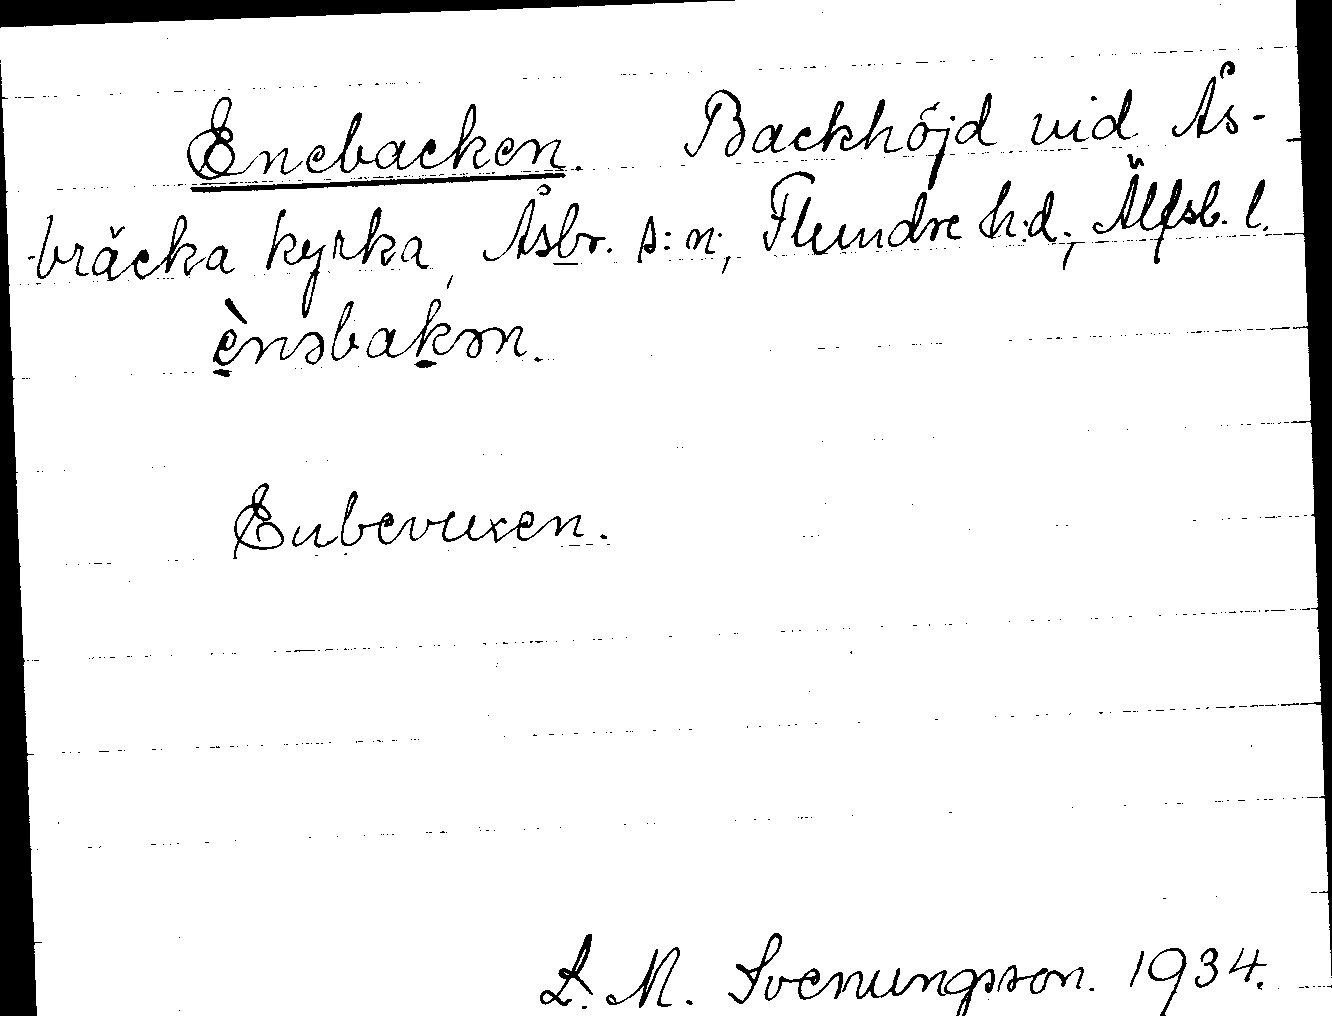 Enebacken. Backhöjd vid Ås-
bräcka kyrka, Åsbr. s:n, Flundre h.d., Älfsb. l.
ènəbakən.
Enbevuxen.
L. M. Svenungsson. 1934.